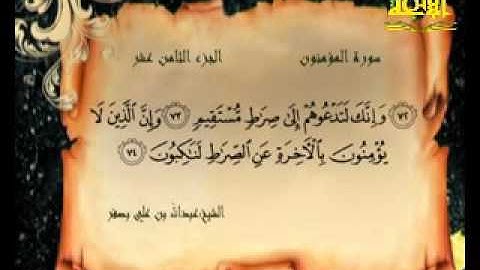 سورة المؤمنون
الجزء الثامن عشر
٧٢ وَإِنَّكَ لَتَدْعُوهُمْ إِلَىٰ صِرَٰطٍ مُّسْتَقِيمٍ ٧٣ وَإِنَّ ٱلَّذِينَ لَا
يُؤْمِنُونَ بِٱلْآخِرَةِ عَنِ ٱلصِّرَٰطِ لَنَٰكِبُونَ ٧٤
الشيخ عبدالله بن علي بصفر